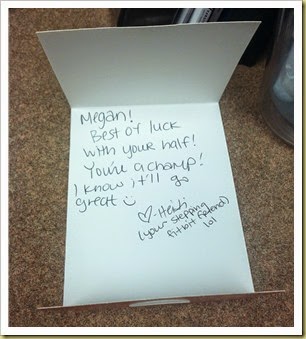 Megan!
Best of luck
with your half!
You're a champ!
I know it'll go
great ☺
♡-Heidi
(your stepping
fitbit friend)
lol